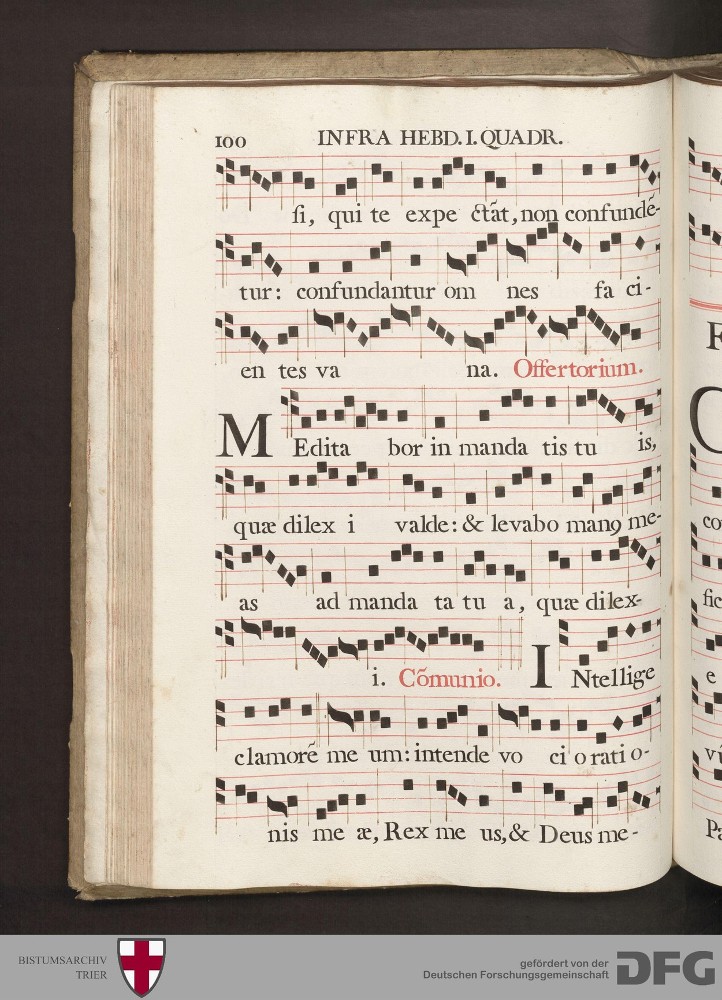 100 INFRA HEBD. I. QUADR.
ſi, qui te expe ctãt, non confundẽ-
tur: confundantur om nes fa ci-
en tes va na. Offertorium.
MEdita bor in manda tis tu is,
quæ dilex i valde: & levabo manꝯ me-
as ad manda ta tu a, quæ dilex-
i. Cõmunio. INtellige
clamorẽ me um: intende vo ci o rati o-
nis me æ, Rex me us, & Deus me-
F
C
co
fic
e
vũ
Pa
BISTUMSARCHIV
TRIER
gefördert von der
Deutschen Forschungsgemeinschaft
DFG